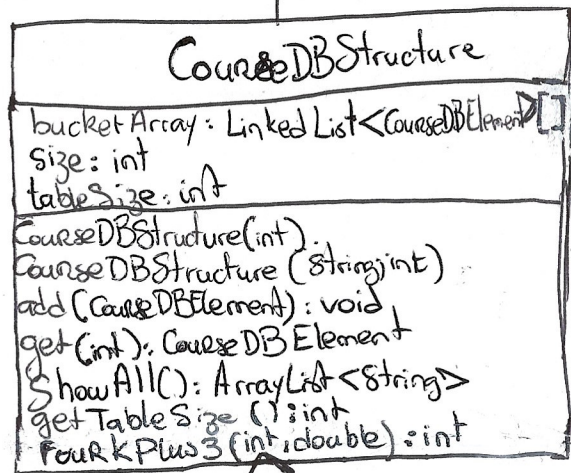 CourseDBStructure
bucketArray: LinkedList<CourseDBElement>[]
size: int
tableSize: int
CourseDBStructure(int)
CourseDBStructure (String, int)
add(CourseDBElement): void
get(int): CourseDBElement
ShowAll(): ArrayList<String>
getTableSize(): int
FourKPlus3(int, double): int